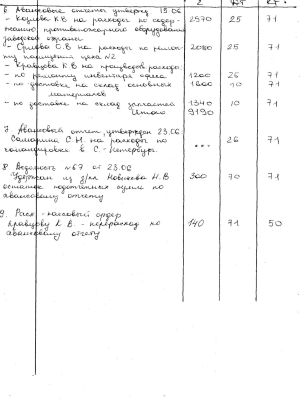 Σ Дт Кт.
6. Авансовые отчеты утвержд. 19.06
- Козлова К.В на расходы по содер- 2970 25 71
жанию противопожарного оборудования
заводской охраны
- Орлова О.В на расходы по ремон- 2080 25 71
ту помещения цеха №2
- Кравцова К В на произвед. расходы:
- по ремонту инвентаря офиса 1200 26 71
- по доставке на склад основных 1600 10 71
материалов
- по доставке на склад запчастей 1340 10 71
Итого 9190
7. Авансовый отчет утвержден 23.06
Самарина С.Н. на расходы по ... 26 71
командировке в С.-Петербург.
8. Ведомость №67 от 23.06
Удержан из з/пл Новикова Н.В 300 70 71
остаток подотчетных сумм по
авансовому отчету
9. Расх.-кассовый ордер
Кравцову К В - перерасход по 140 71 50
авансовому отчету